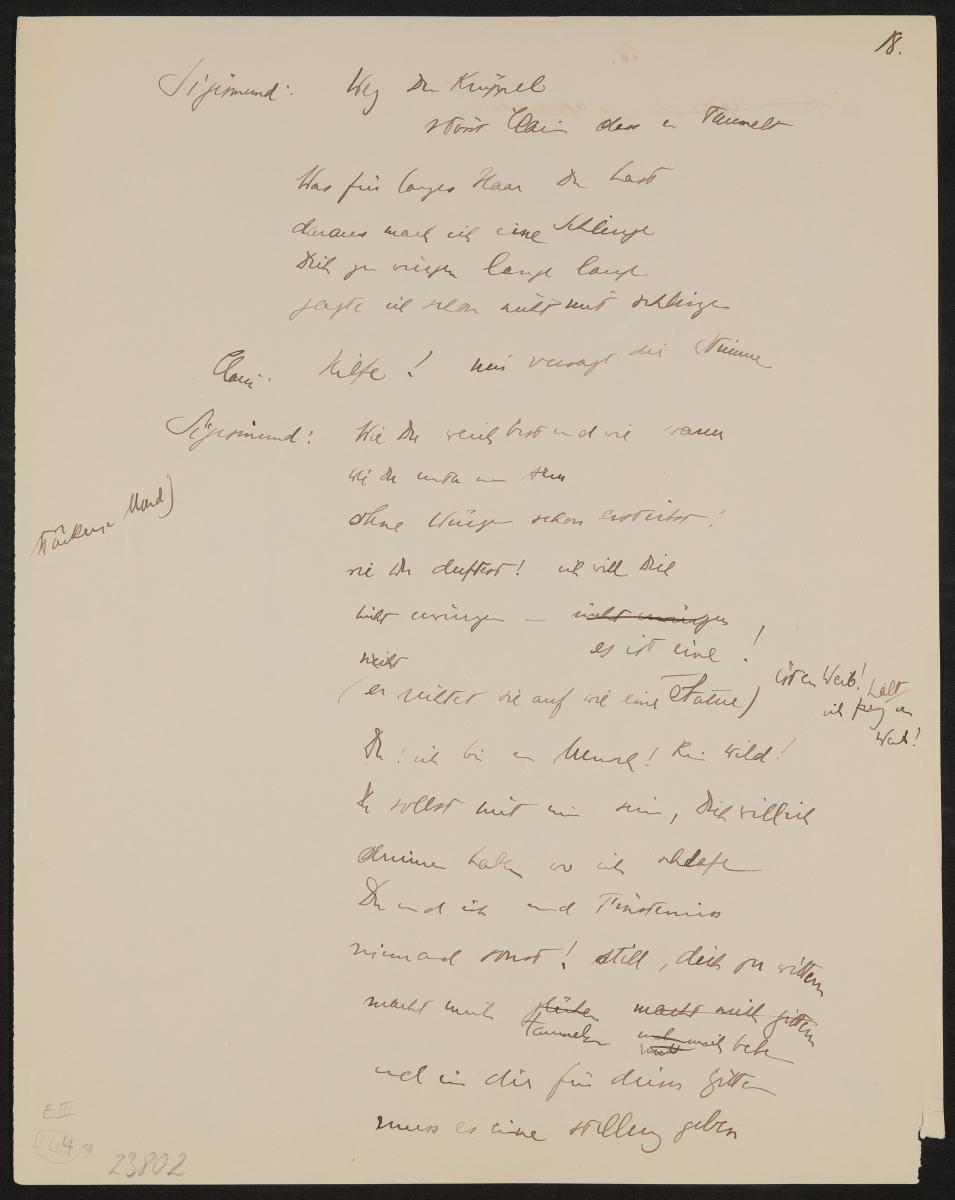 18.
Sigismund: Weg Du Krüppel
stösst Clarin dass er Taumelt
Was für langes Haar Du hast
daraus mach ich eine Schlinge
Dich zu würgen lange lange
jagte ich schon nicht mit schlingen
Clarin: Hilfe! mir versagt die Stimme
Sigismund: Wie Du weich bist und wie warm
wie Du unter meinem
ohne Würgen schon erstirbst!
wie Du duftest! ich will Dich
(stärkerer Mond)
nicht erwürgen – nicht erwürgen
es ist eine!
nicht
(er richtet sie auf wie eine Statue)
ist ein Weib! halt
ich fing ein
Weib!
Du! ich bin ein Mensch! Kein Wild!
Du sollst mit mir sein, Dich will ich
drinnen haben wo ich schlafe
Du und ich und Finsterniss
niemand sonst! still, dich zu wittern
macht mich glühen macht mich zittern
taumeln und mich beben
und in dir für dieses Zittern
muss es eine stillung geben
E III
23802